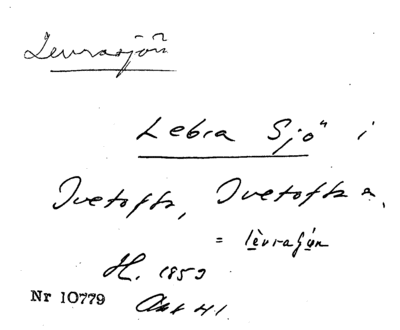 Levrasjön
Lebra Sjö" i
Ivetofta, Ivetofta s.
= lèvraſjön
H. 1853
Akt 41.
Nr 10779